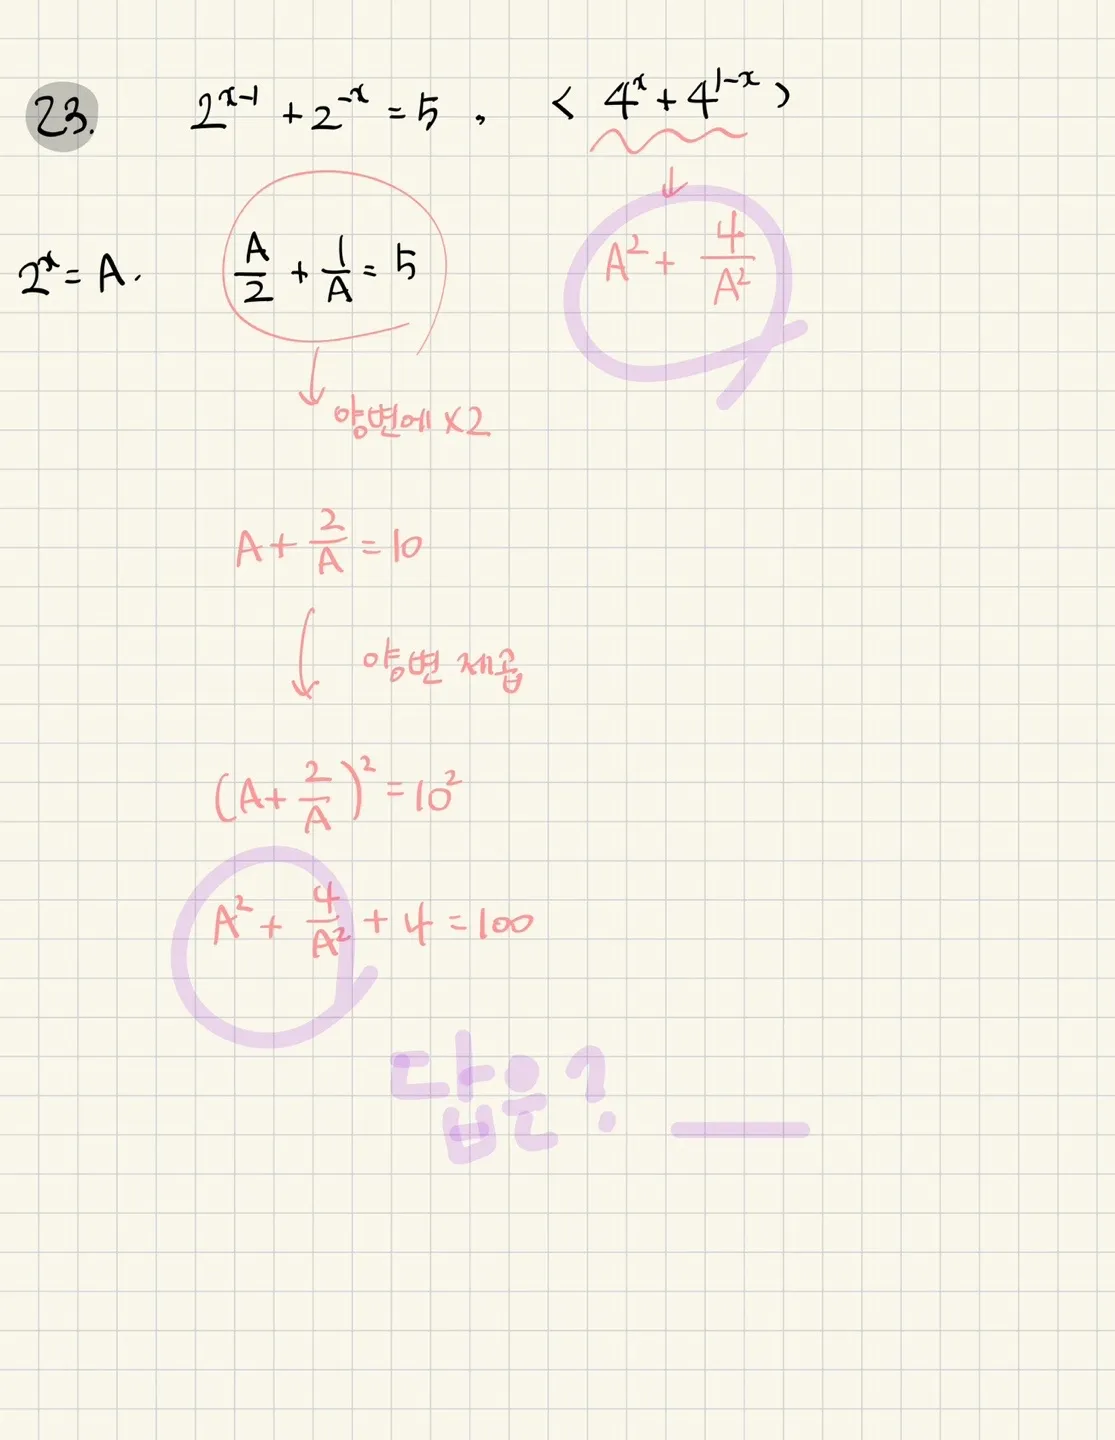 23. 2^{x-1} + 2^{-x} = 5 , < 4^x + 4^{1-x} >
2^x = A . A/2 + 1/A = 5 A² + 4/A²
양변에 ×2
A + 2/A = 10
양변 제곱
(A + 2/A)² = 10²
A² + 4/A² + 4 = 100
답은?